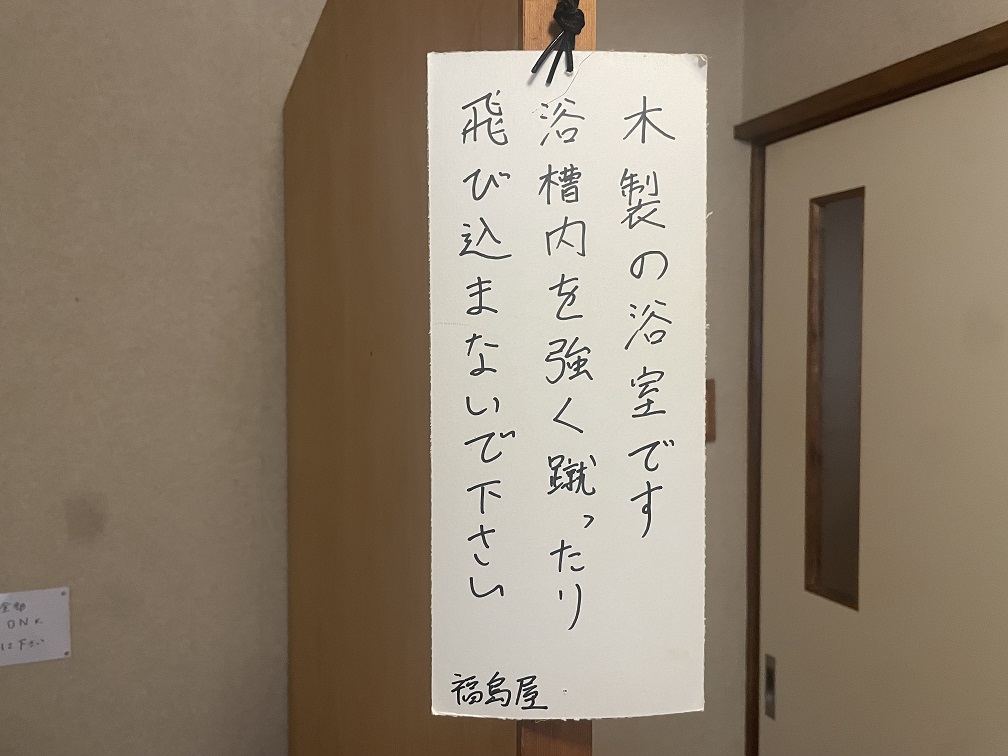 木製の浴室です
浴槽内を強く蹴ったり
飛び込まないで下さい
福島屋
全部
ONに
して下さい